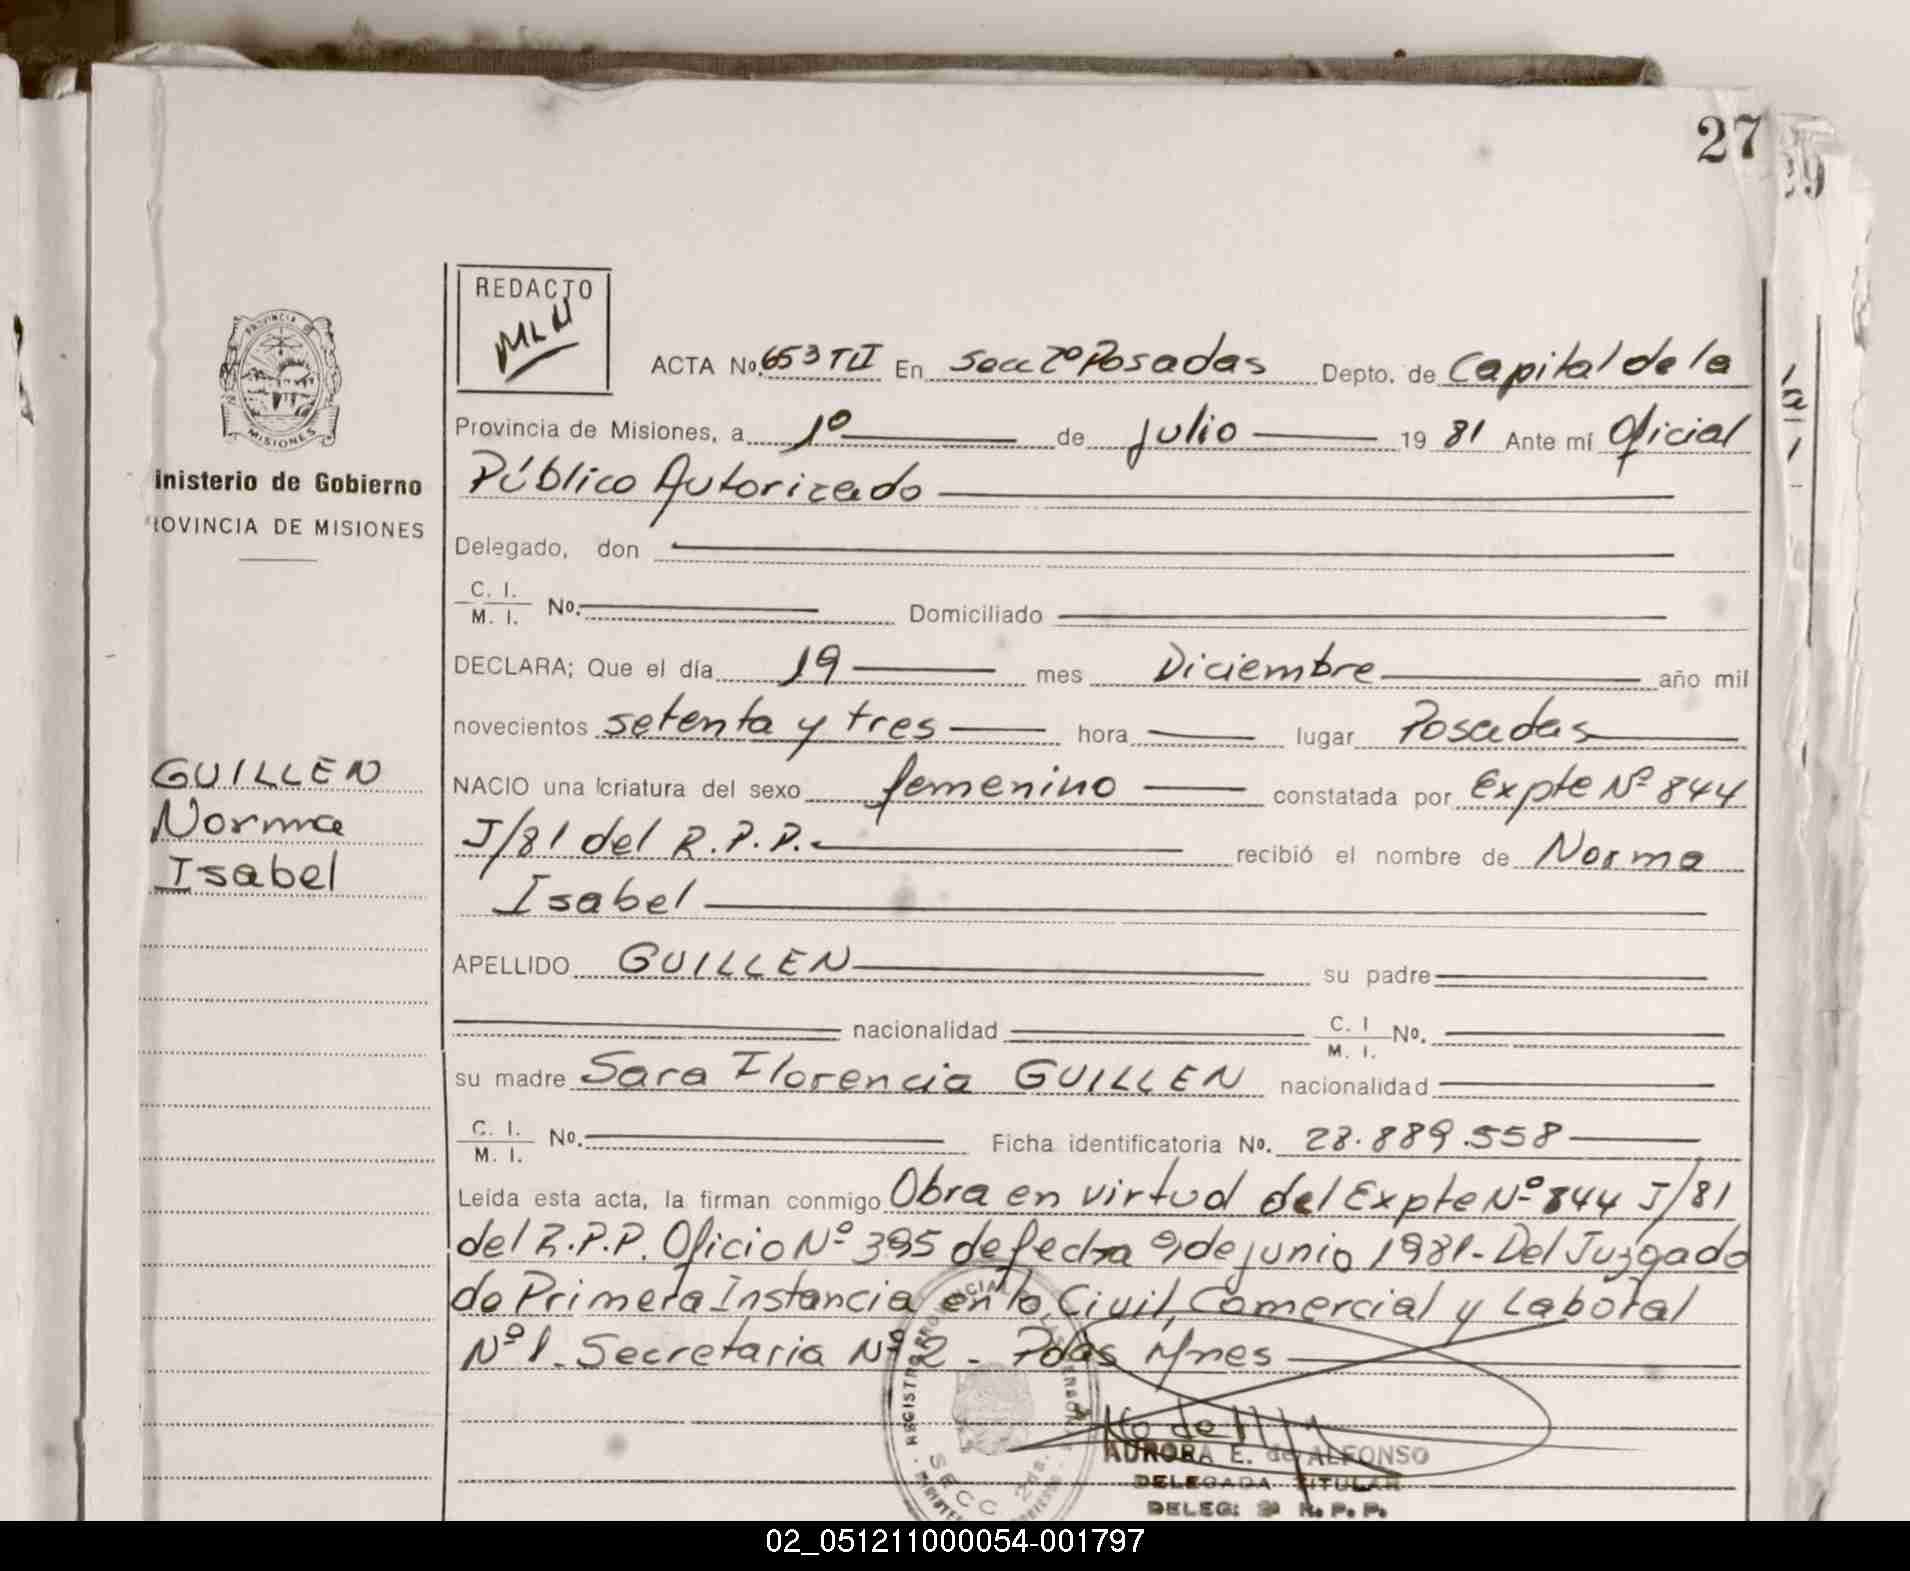 27
29
REDACTO
MLN
ACTA No. 653 TII En Secc 2º Posadas Depto. de Capital de la
Provincia de Misiones, a 1º de julio 19 81 Ante mí Oficial
Público Autorizado
inisterio de Gobierno
ROVINCIA DE MISIONES
Delegado, don
C. I.
M. I. No. Domiciliado
DECLARA; Que el día 19 mes Diciembre año mil
novecientos setenta y tres hora lugar Posadas
GUILLEN
Norma
Isabel
NACIO una criatura del sexo femenino constatada por Expte Nº 844
J/81 del R.P.P. recibió el nombre de Norma
Isabel
APELLIDO GUILLEN su padre
nacionalidad C. I M. I. No.
su madre Sara Florencia GUILLEN nacionalidad
C. I. M. I. No. Ficha identificatoria No. 23.889.558
Leída esta acta, la firman conmigo Obra en virtud del Expte Nº 844 J/81
del R.P.P. Oficio Nº 395 de fecha 9 de junio 1981- Del Juzgado
de Primera Instancia en lo Civil, Comercial y Laboral
Nº 1. Secretaria Nº 2 - Pdas Mnes
AURORA E. de ALFONSO
DELEGADA TITULAR
DELEG: 2ª R. P. P.
02_051211000054-001797